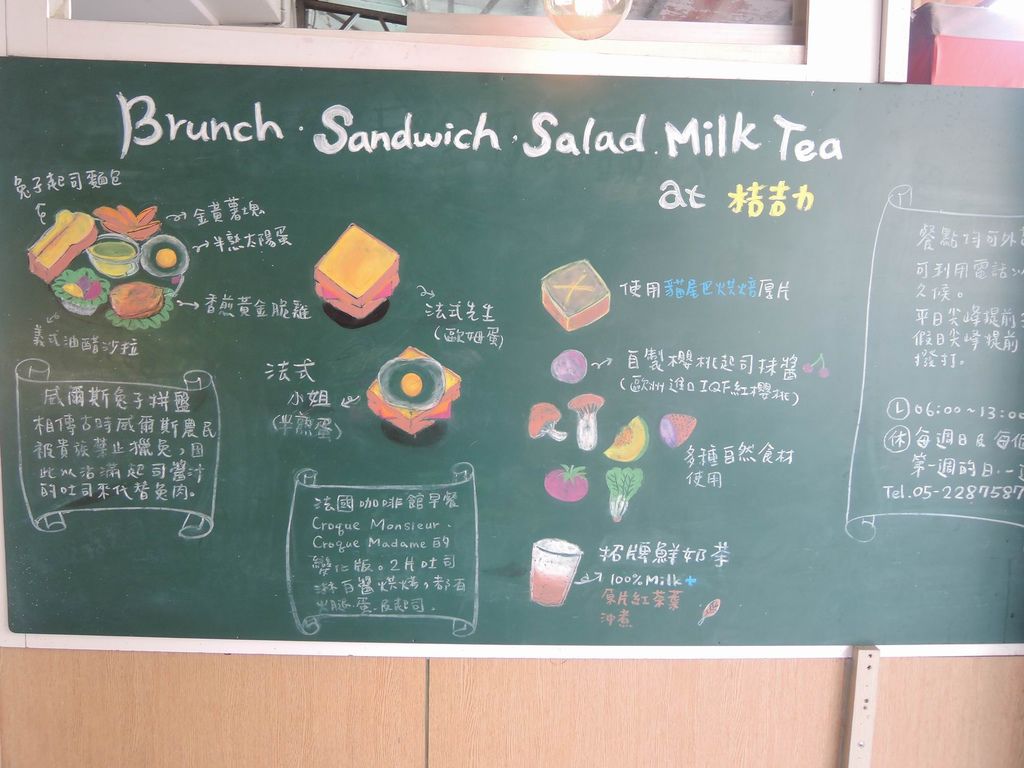 Brunch · Sandwich · Salad . Milk Tea
at 桔吉力
兔子起司麵包
金黃薯塊
半戀太陽蛋
香煎黃金脆雞
義式油醋沙拉
威爾斯兔子拼盤
相傳古時威爾斯農民
被貴族禁止獵兔,因
此以沾滿起司醬汁
的吐司來代替兔肉。
法式先生
(歐姆蛋)
法式
小姐
(半煎蛋)
法國咖啡館早餐
Croque Monsieur、
Croque Madame的
變化版。2片吐司
淋白醬烘烤,都有
火腿、蛋、及起司.
使用貓尾巴烘焙厚片
自製櫻桃起司抹醬
(歐洲進口IQF紅櫻桃)
多種自然食材
使用
招牌鮮奶茶
100% Milk +
原片紅茶葉
沖煮
餐點均可外
可利用電話
久候。
平日尖峰提前
假日尖峰提前
撥打。
06:00~13:00
休 每週日及每個
第一週的日.一
Tel.05-2287587